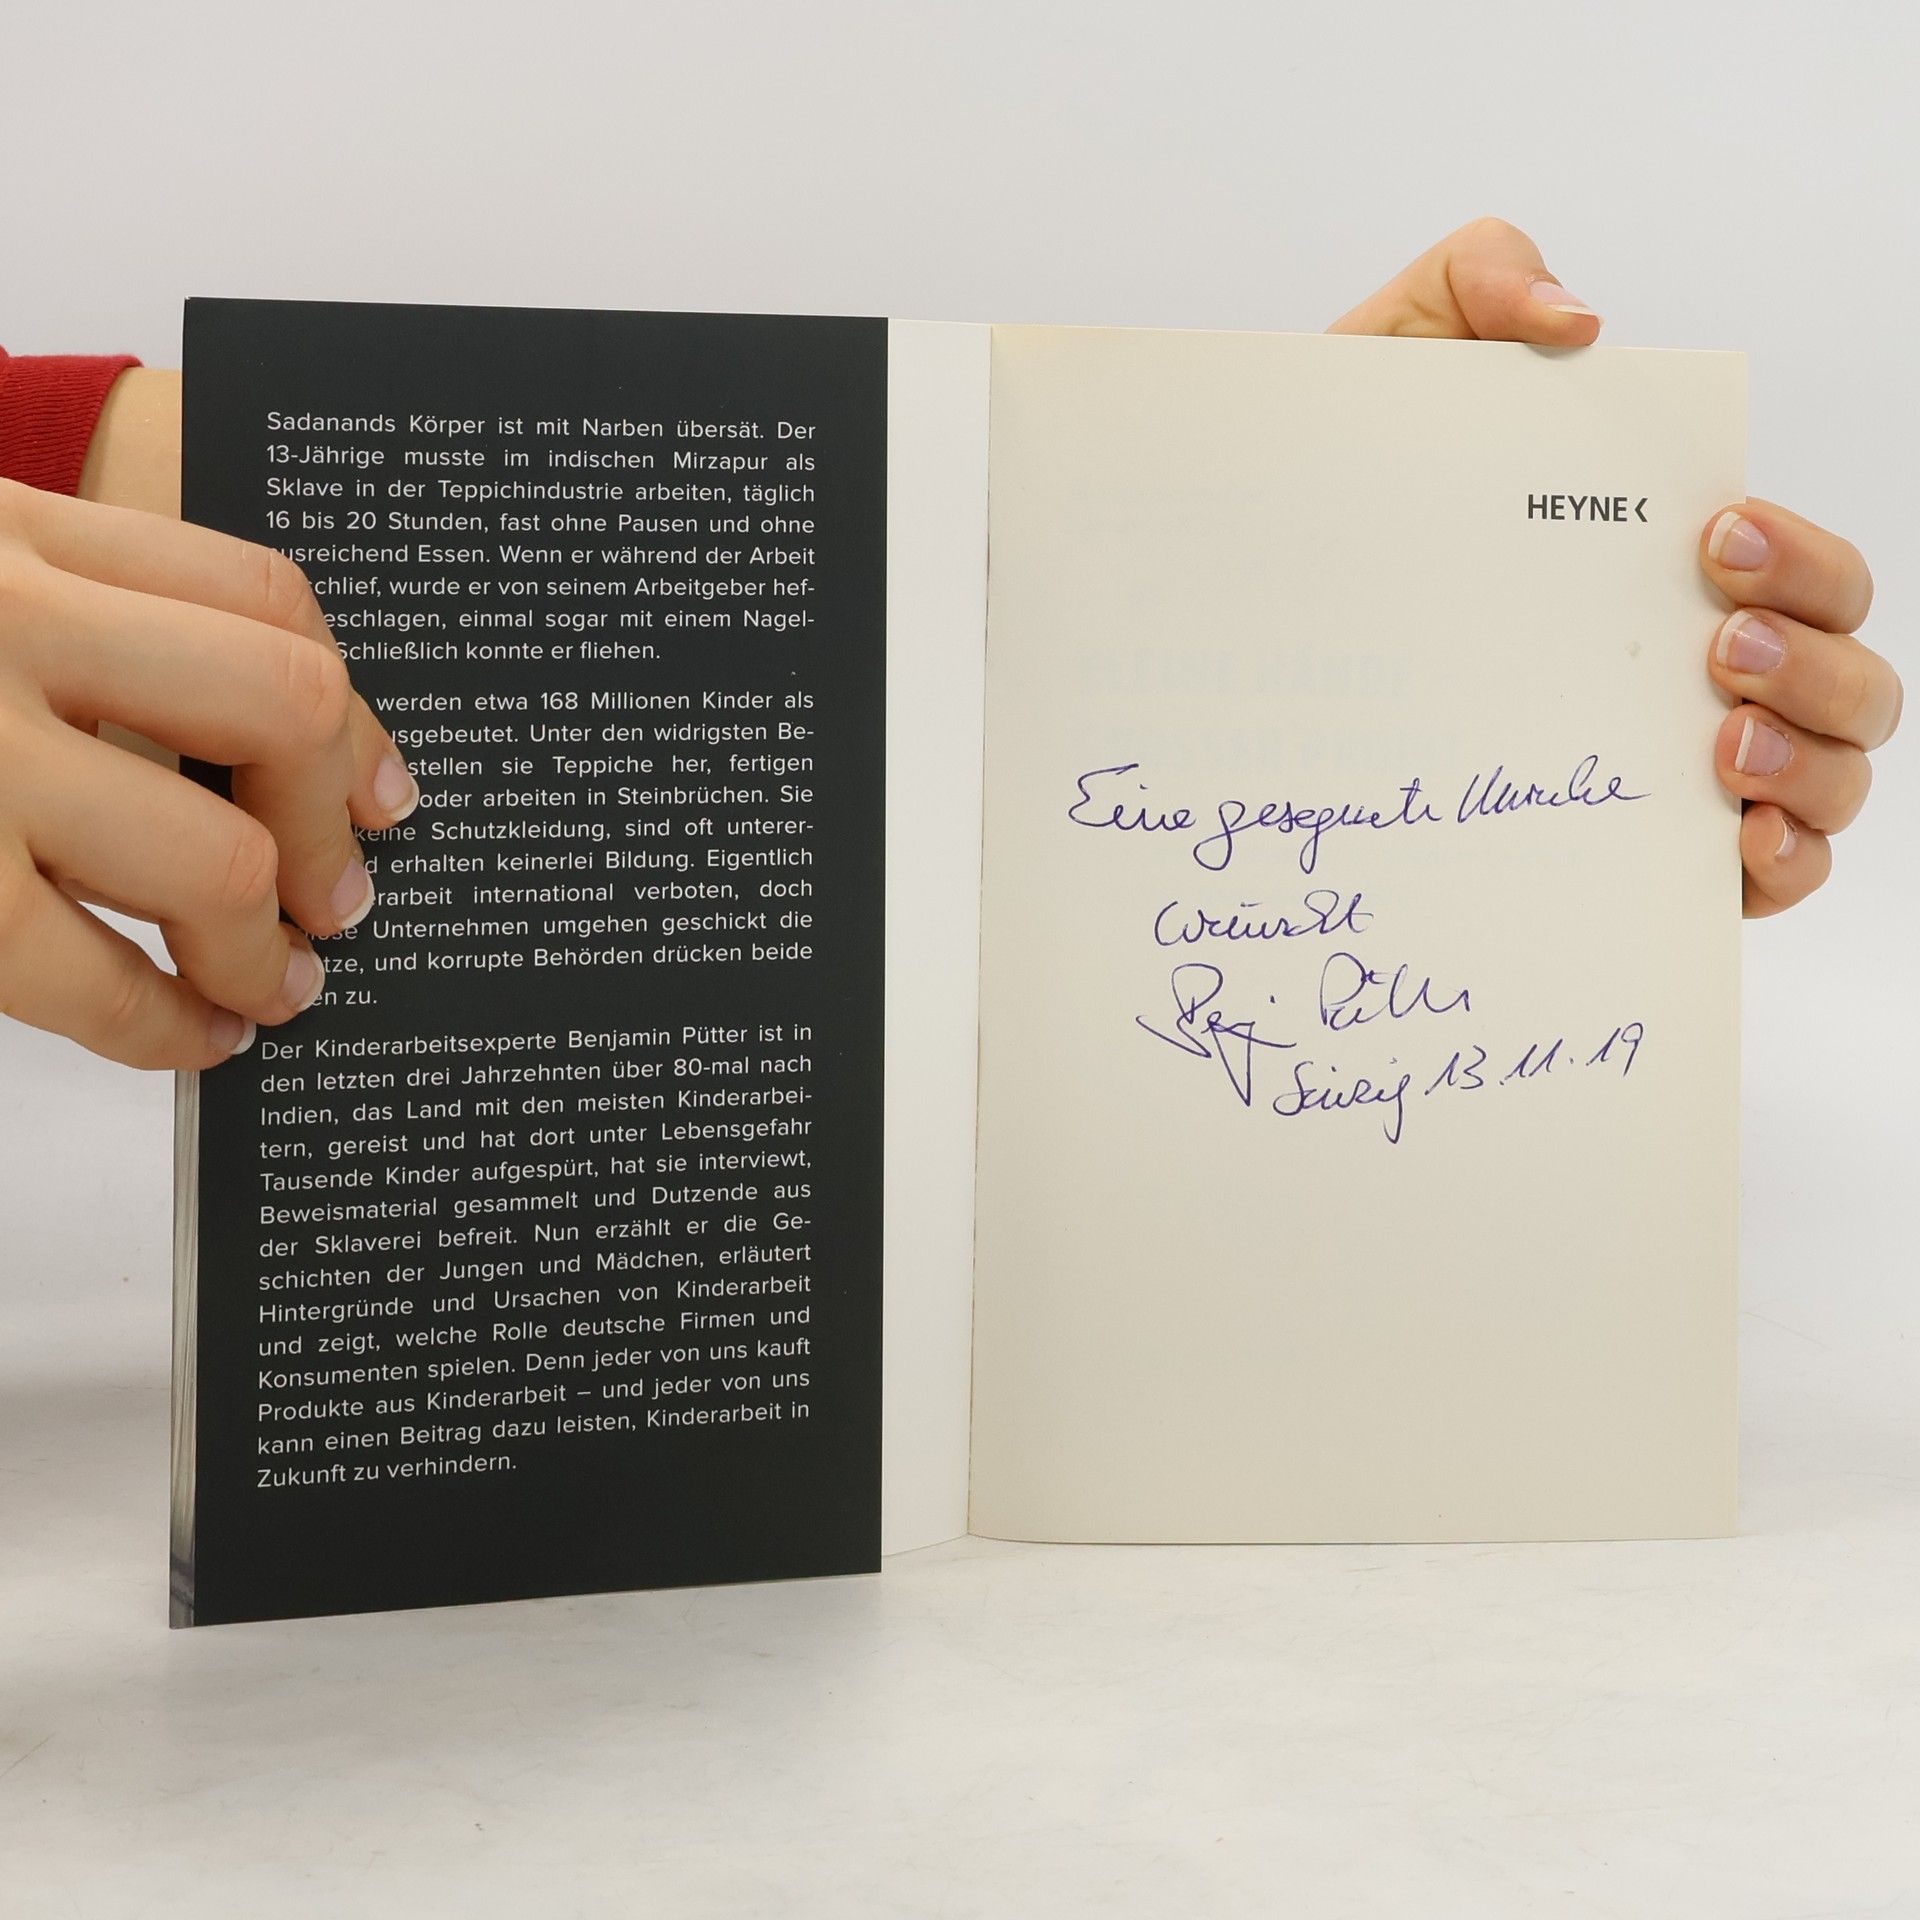 Sadanands Körper ist mit Narben übersät. Der
13-Jährige musste im indischen Mirzapur als
Sklave in der Teppichindustrie arbeiten, täglich
16 bis 20 Stunden, fast ohne Pausen und ohne
usreichend Essen. Wenn er während der Arbeit
schlief, wurde er von seinem Arbeitgeber hef-
eschlagen, einmal sogar mit einem Nagel-
Schließlich konnte er fliehen.
werden etwa 168 Millionen Kinder als
usgebeutet. Unter den widrigsten Be-
stellen sie Teppiche her, fertigen
oder arbeiten in Steinbrüchen. Sie
keine Schutzkleidung, sind oft unterer-
d erhalten keinerlei Bildung. Eigentlich
erarbeit international verboten, doch
Unternehmen umgehen geschickt die
tze, und korrupte Behörden drücken beide
en zu.
Der Kinderarbeitsexperte Benjamin Pütter ist in
den letzten drei Jahrzehnten über 80-mal nach
Indien, das Land mit den meisten Kinderarbei-
tern, gereist und hat dort unter Lebensgefahr
Tausende Kinder aufgespürt, hat sie interviewt,
Beweismaterial gesammelt und Dutzende aus
der Sklaverei befreit. Nun erzählt er die Ge-
schichten der Jungen und Mädchen, erläutert
Hintergründe und Ursachen von Kinderarbeit
und zeigt, welche Rolle deutsche Firmen und
Konsumenten spielen. Denn jeder von uns kauft
Produkte aus Kinderarbeit – und jeder von uns
kann einen Beitrag dazu leisten, Kinderarbeit in
Zukunft zu verhindern.
HEYNE
Eine gesegnete Unruhe
wünscht
Benj. Pütter
Sinzig 13.11.19